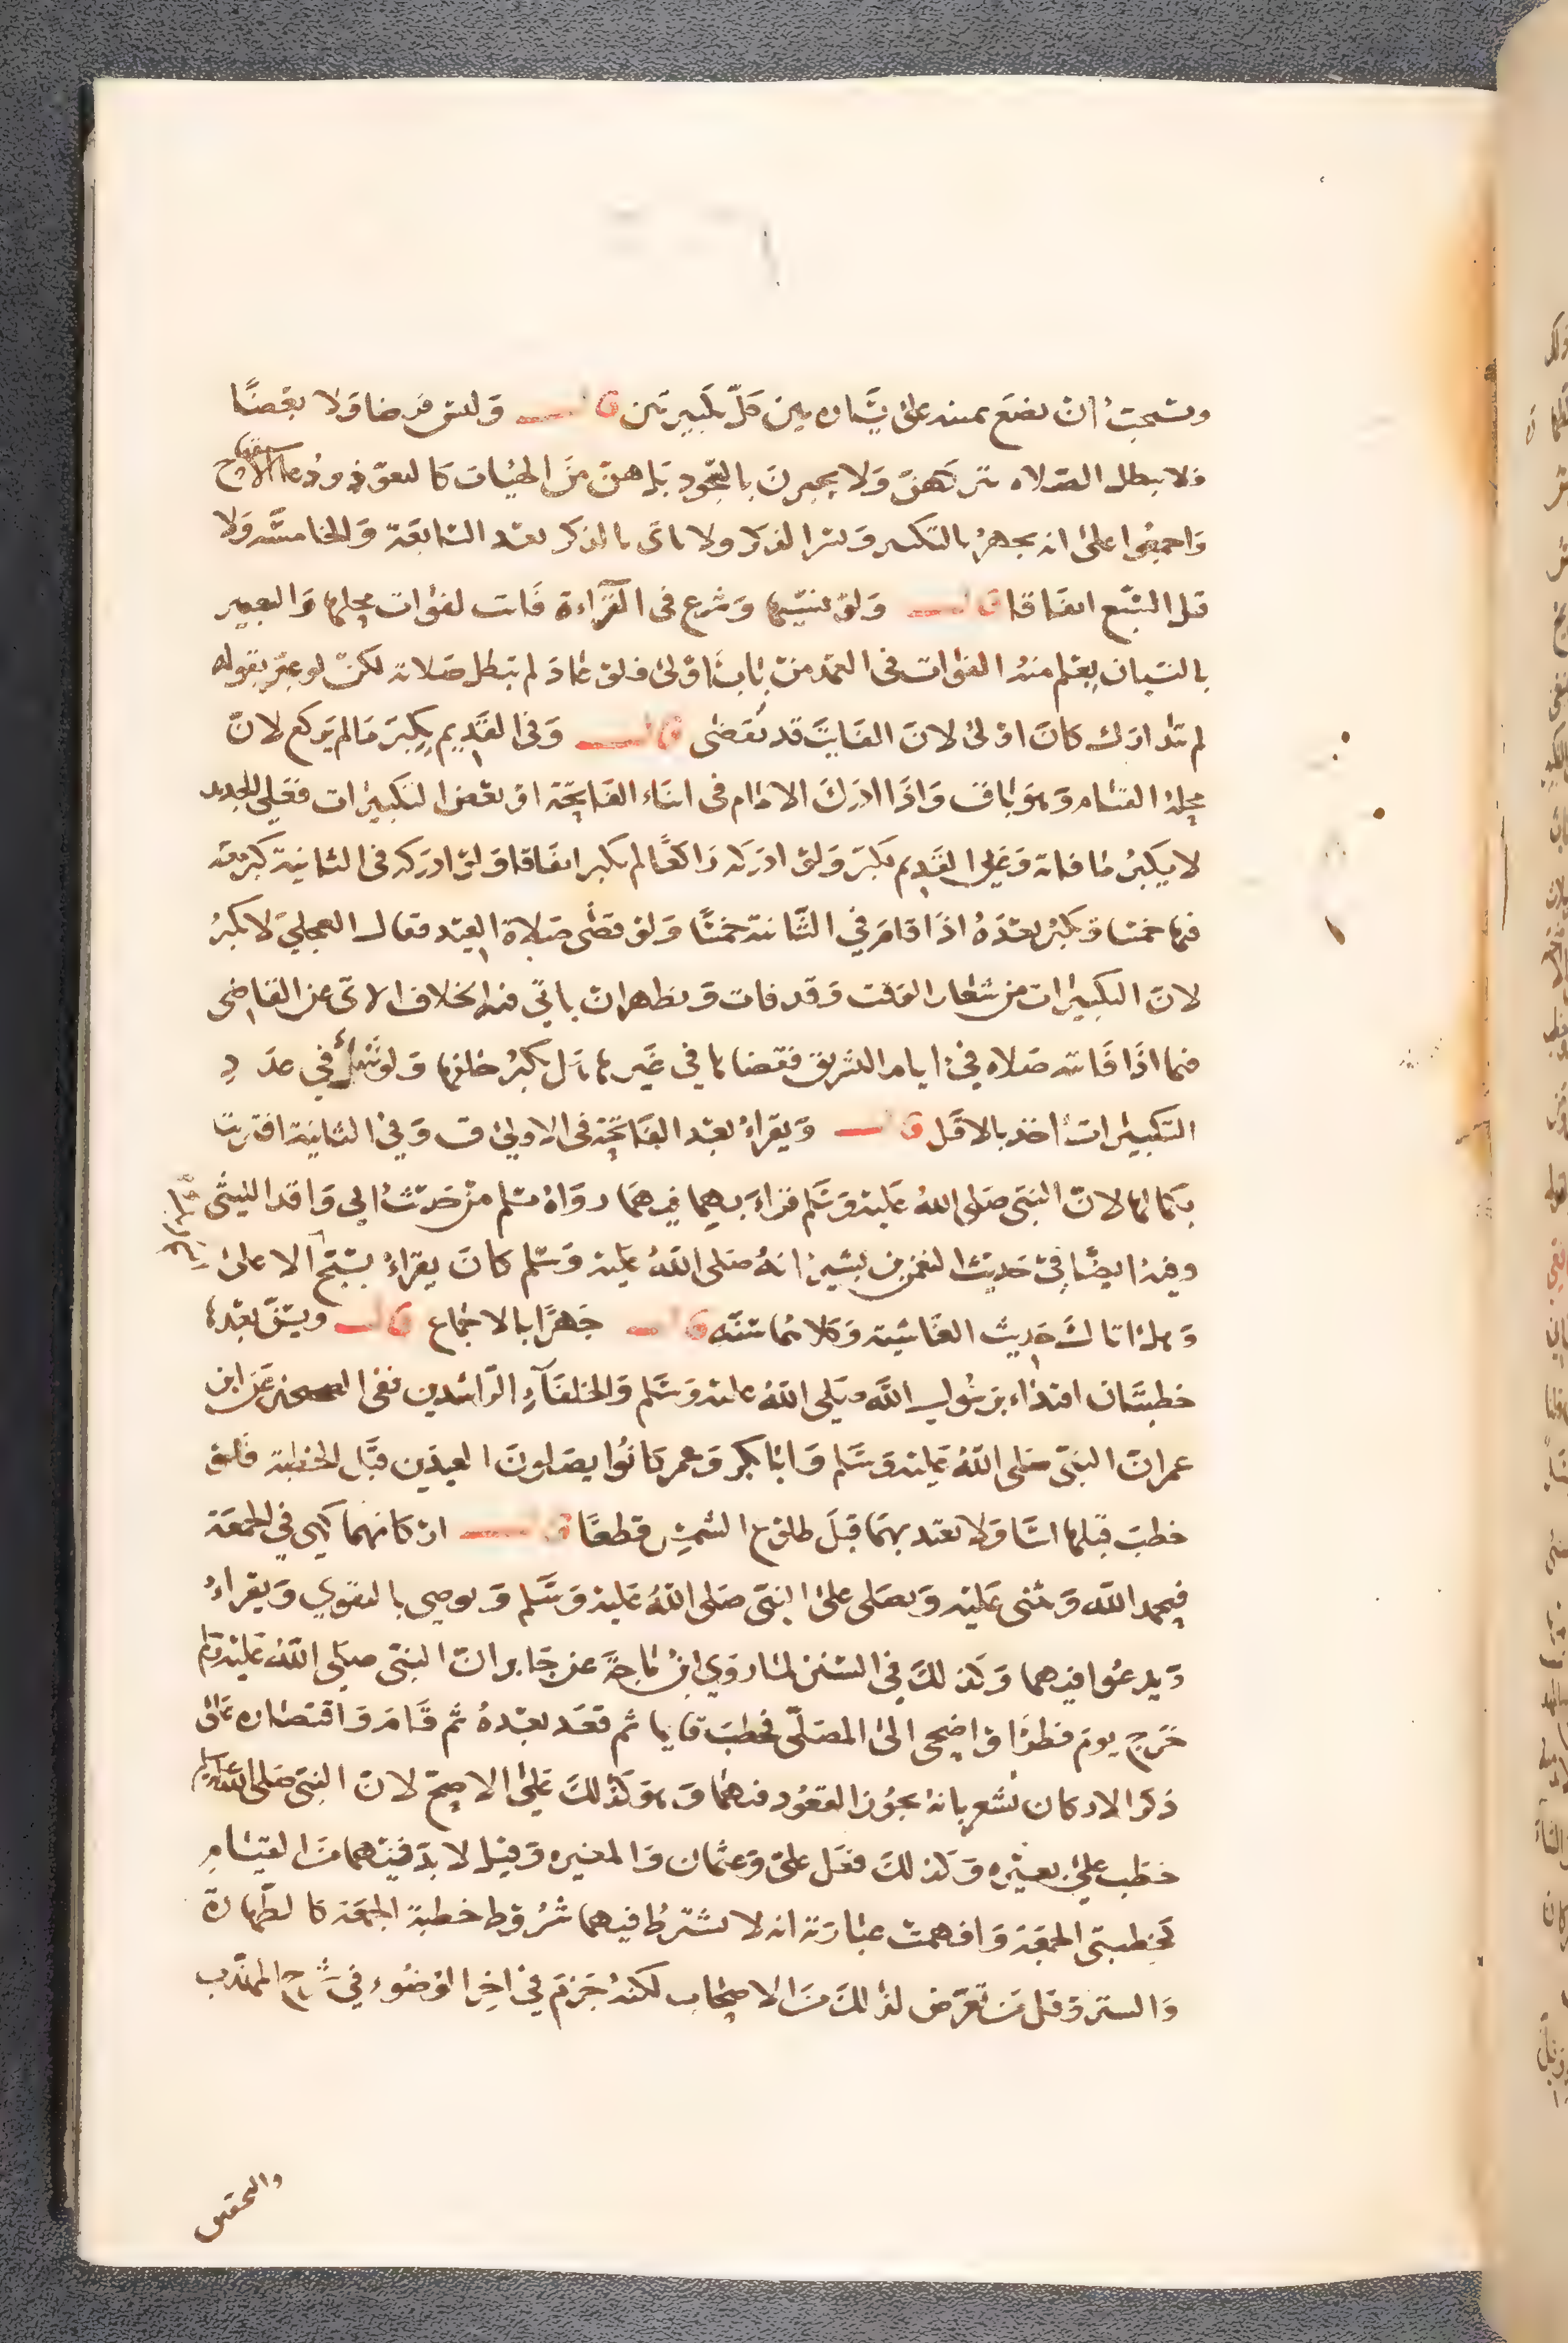 ويستحب ان يضع يمينه على يساره بين كل تكبيرتين قال وليس فرضا ولا بعضا
فلا يبطل الصلاة تركهن ولا يجبرن بالسجود بل هن من الهيئات كالتعوذ ودعا الاستفتاح
واجمعوا على انه يجهر بالتكبير ويسر الذكر ولا ياتي بالذكر بعد السابعة والخامسة ولا
قبل السبع اتفاقا قال ولو نسيها وشرع في القراءة فاتت لفوات محلها والتعبير
بالنسيان يعلم منه الفوات في العمد من باب اولى فلو عاد لم تبطل صلاته لكن لو عبر بقوله
لم يتدارك كان اولى لان الفايت قد يقضى قال وفي القديم يكبر مالم يركع لان
محله القيام وهو باق واذا ادرك الامام في اثناء الفاتحة او بعض التكبيرات فعلى الجديد
لا يكبر ما فاته وعلى القديم يكبر ولو ادركه راكعا لم يكبر اتفاقا ولو ادركه في الثانية كبر معه
فيها خمسا ويكبر بعده اذا قام في الثانية خمسا ولو قضى صلاة العيد فقال العجلي لا يكبر
لان التكبيرات من شعار الوقت وقد فات ويظهر ان ياتي فيه الخلاف الاتي عن القاضي
فيما اذا فاتته صلاة في ايام التشريق فقضاها في غيرها هل يكبر خلفها ولو شك في عدد
التكبيرات اخذ بالاقل قال ويقراء بعد الفاتحة في الاولى ق وفي الثانية اقتربت
بكمالها لان النبي صلى الله عليه وسلم قراء بهما فيهما رواه مسلم من حديث ابي واقد الليثي
وفيه ايضا في حديث النعمن بن بشير انه صلى الله عليه وسلم كان يقراء بسبح الاعلى
وهل اتاك حديث الغاشية وكلاهما سنة قال جهرا بالاجماع قال ويسن بعدها
خطبتان اقتداء برسول الله صلى الله عليه وسلم والخلفاء الراشدين ففي الصحيحين عن ابن
عمر ان النبي صلى الله عليه وسلم وابا بكر وعمر كانوا يصلون العيدين قبل الخطبة فلو
خطب قبلها اسا ولا يعتد بهما قبل طلوع الشمس قطعا قال اركانهما كهي في الجمعة
فيحمد الله ويثني عليه ويصلي على النبي صلى الله عليه وسلم ويوصي بالتقوي ويقراء
ويدعوا فيهما وكذلك في السنن لما روي ابن ماجة عن جابر ان النبي صلى الله عليه وسلم
خرج يوم فطر او اضحى الى المصلى فخطب قايما ثم قعد بعده ثم قام واقتصاره على
ذكر الاركان يشعر بانه يجوز القعود فيهما وهو كذلك على الاصح لان النبي صلى الله عليه وسلم
خطب على بعيره وكذلك فعل علي وعثمان والمغيره وقيل لا بد فيهما من القيام
كخطبتي الجمعة وافهمت عبارته انه لا يشترط فيهما شروط خطبة الجمعة كالطهارة
والستر وقل من تعرض لذلك من الاصحاب لكنه جزم في اخر الوضوء في شرح المهذب
والتحقيق